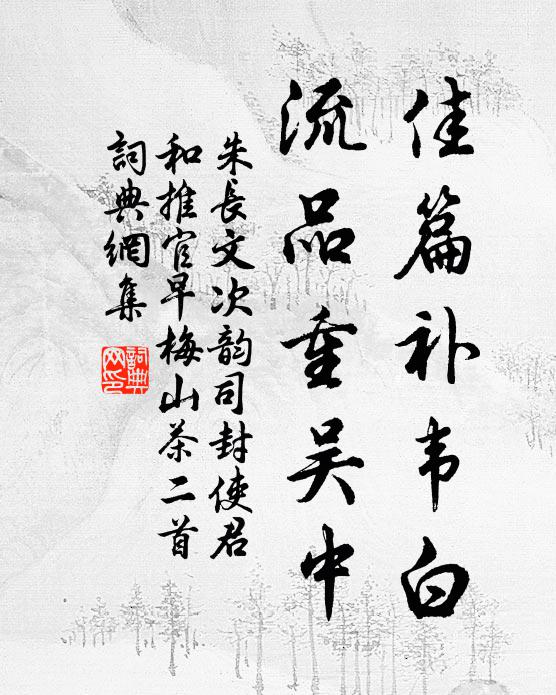 佳篇补韦白
流品重吴中
朱長文次韵司封使君
和推官早梅山茶二首
詞典網集
詞典
网印